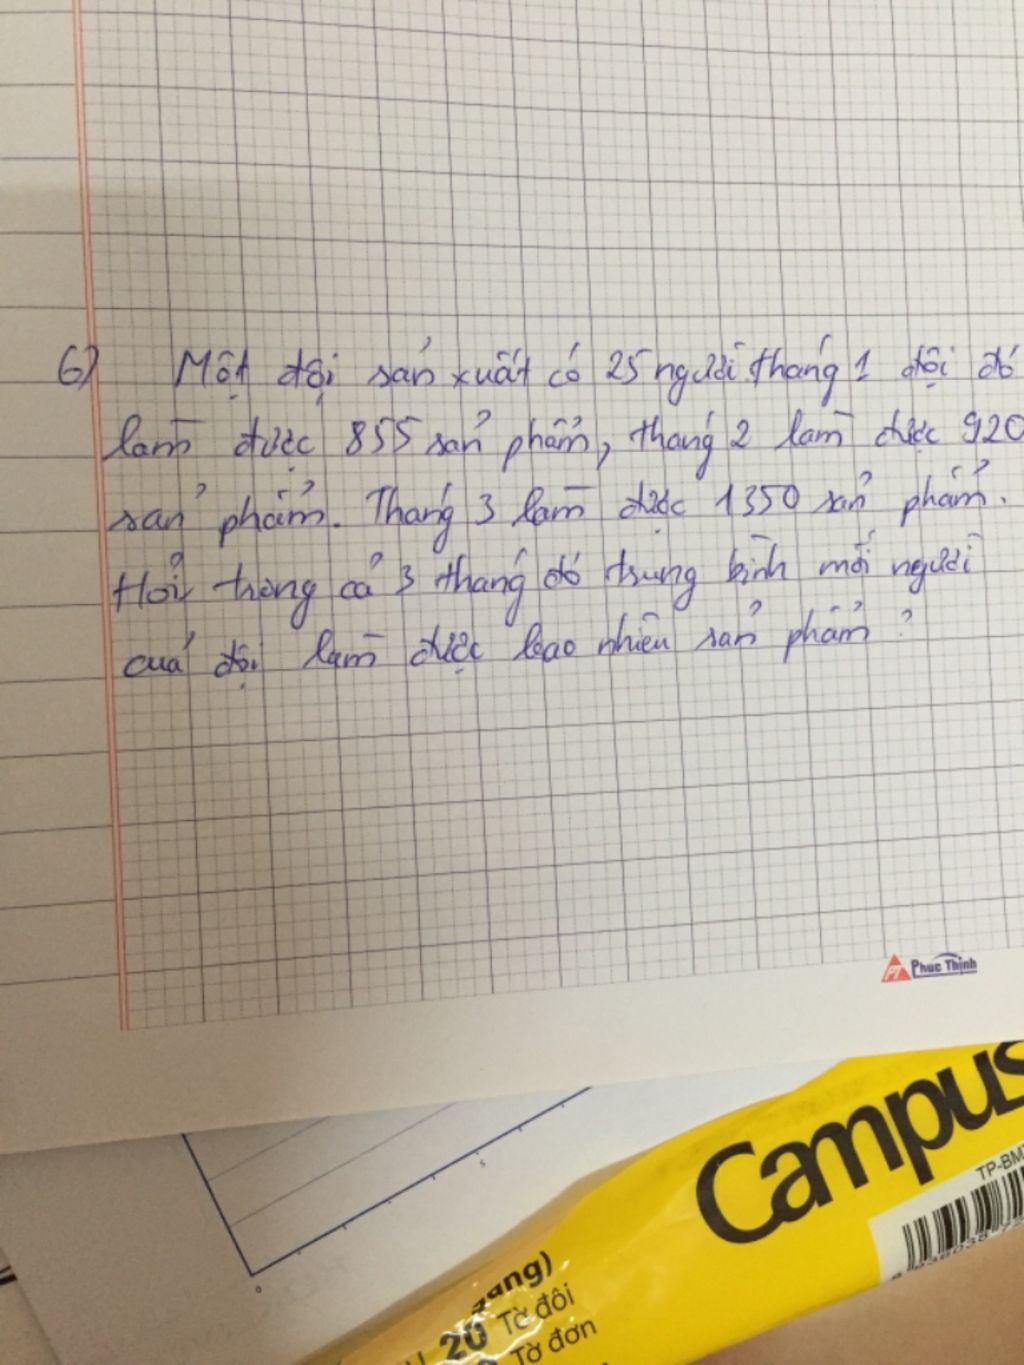 6) Một đội sản xuất có 25 người. tháng 1 đội đó
làm được 855 sản phẩm, tháng 2 làm được 920
sản phẩm. Tháng 3 làm được 1350 sản phẩm.
Hỏi trong cả 3 tháng đó trung bình mỗi người
của đội làm được bao nhiêu sản phẩm ?
PT Phuc Thinh
Campus
20 Tờ đôi
Tờ đơn